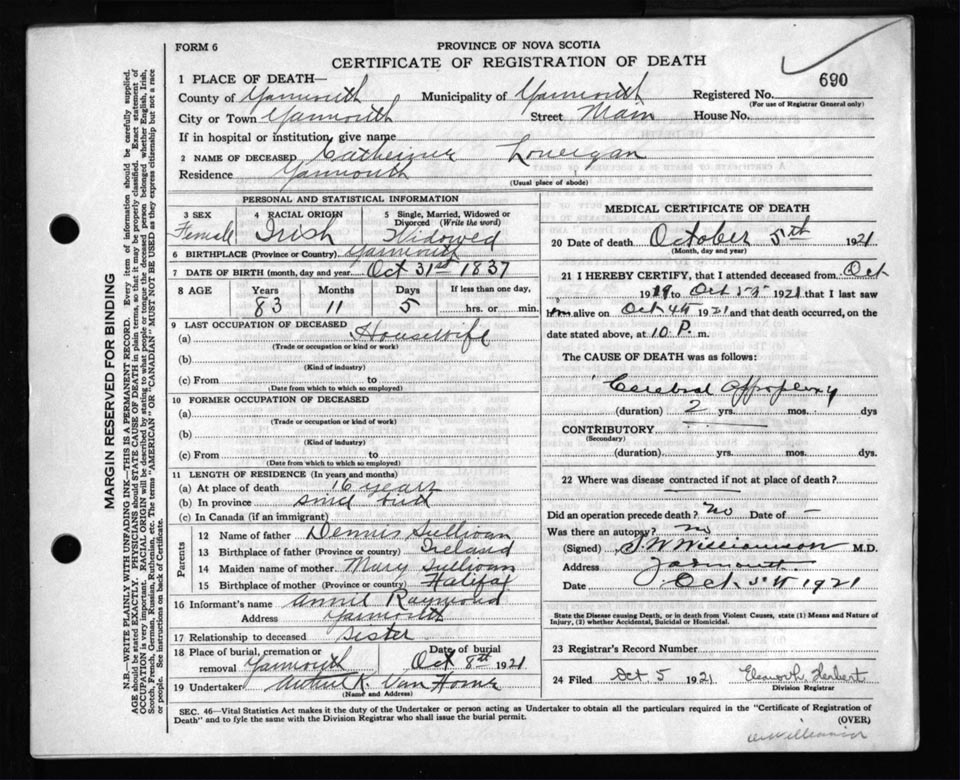 FORM 6
PROVINCE OF NOVA SCOTIA
CERTIFICATE OF REGISTRATION OF DEATH
690
1 PLACE OF DEATH—
County of Yarmouth Municipality of Yarmouth Registered No.
(For use of Registrar General only)
City or Town Yarmouth Street Main House No.
If in hospital or institution, give name
2 NAME OF DECEASED Catherine Lonergan
Residence Yarmouth
(Usual place of abode)
PERSONAL AND STATISTICAL INFORMATION
3 SEX 4 RACIAL ORIGIN 5 Single, Married, Widowed or Divorced (Write the word)
Female Irish Widowed
6 BIRTHPLACE (Province or Country) Yarmouth
7 DATE OF BIRTH (month, day and year) Oct 31st 1837
8 AGE Years Months Days If less than one day,
83 11 5 hrs. or min.
9 LAST OCCUPATION OF DECEASED
(a) Housewife
(Trade or occupation or kind or work)
(b)
(Kind of industry)
(c) From to
(Date from which to which so employed)
10 FORMER OCCUPATION OF DECEASED
(a)
(Trade or occupation or kind of work)
(b)
(Kind of industry)
(c) From to
(Date from which to which so employed)
11 LENGTH OF RESIDENCE (In years and months)
(a) At place of death 16 years
(b) In province since bird
(c) In Canada (if an immigrant)
Parents
12 Name of father Dennis Sullivan
13 Birthplace of father (Province or country) Ireland
14 Maiden name of mother Mary Sullivan
15 Birthplace of mother (Province or country) Halifax
16 Informant's name Annie Raymond
Address Yarmouth
17 Relationship to deceased Sister
18 Place of burial, cremation or removal Yarmouth Date of burial Oct 8th 1921
19 Undertaker Arthur K. Van Horne
(Name and Address)
MEDICAL CERTIFICATE OF DEATH
20 Date of death October 5th 1921
(Month, day and year)
21 I HEREBY CERTIFY, that I attended deceased from Oct
1919 to Oct 5th 1921 that I last saw
alive on Oct 4th 1921 and that death occurred, on
date stated above, at 10 P. m.
The CAUSE OF DEATH was as follows:
Cerebral Appoplexy
(duration) 2 yrs. mos. dys
CONTRIBUTORY
(Secondary)
(duration) yrs. mos. dys.
22 Where was disease contracted if not at place of death?
Did an operation precede death? no Date of —
Was there an autopsy? no
(Signed) S W Williamson M.D.
Address Yarmouth
Date Oct 5th 1921
State the Disease causing Death, or in death from Violent Causes, state (1) Means and Nature of
Injury, (2) whether Accidental, Suicidal or Homicidal.
23 Registrar's Record Number
24 Filed Oct 5 1921 Herbert
Division Registrar
SEC. 46—Vital Statistics Act makes it the duty of the Undertaker or person acting as Undertaker to obtain all the particulars required in the "Certificate of Registration of
Death" and to fyle the same with the Division Registrar who shall issue the burial permit. (OVER)
MARGIN RESERVED FOR BINDING
N.B.—WRITE PLAINLY WITH UNFADING INK—THIS IS A PERMANENT RECORD. Every item of information should be carefully supplied.
AGE should be stated EXACTLY. PHYSICIANS should STATE CAUSE OF DEATH in plain terms, so that it may be properly classified. Exact statement of
OCCUPATION is very important. RACIAL ORIGIN will be described by stating to what people or tongue the deceased person belonged whether English, Irish,
Scotch, French, German, Russian, Ruthenian, etc. The terms "AMERICAN" OR "CANADIAN" MUST NOT BE USED as they express citizenship but not a race
or people. See instructions on back of Certificate.